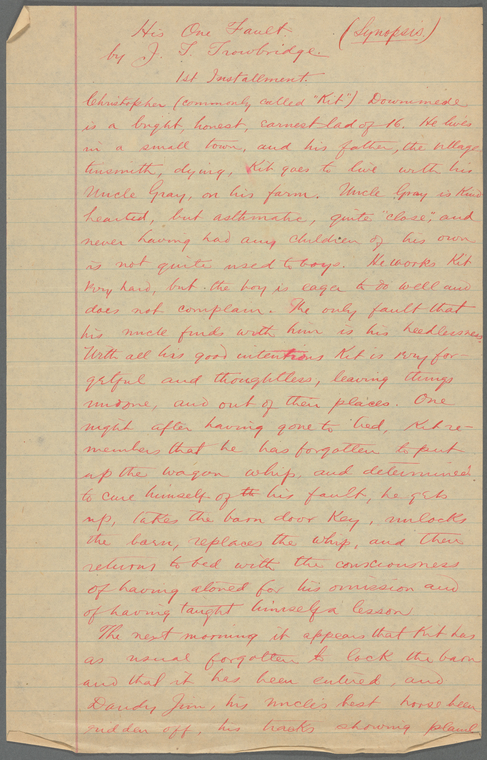 His One Fault (Synopsis.)
by J. T. Trowbridge
1st Installment.
Christopher (commonly called "Kit") Downimede
is a bright, honest, earnest lad of 16. He lives
in a small town, and his father, the village
tinsmith, dying, Kit goes to live with his
Uncle Gray, on his farm. Uncle Gray is kind
hearted, but asthmatic, quite "close", and
never having had any children of his own
is not quite used to boys. He works Kit
very hard, but the boy is eager to do well and
does not complain. The only fault that
his uncle finds with him is his heedlessness.
With all his good intentions Kit is very for-
getful and thoughtless, leaving things
undone, and out of their places. One
night after having gone to bed, Kit re-
members that he has forgotten to put
up the wagon whip, and determined
to cure himself of th his fault, he gets
up, takes the barn door key, unlocks
the barn, replaces the whip, and then
returns to bed with the consciousness
of having atoned for his omission and
of having taught himself a lesson
The next morning it appears that Kit has
as usual forgotten to lock the barn
and that it has been entered, and
Dandy Jim, his uncles best horse been
ridden off, his tracks showing plainl